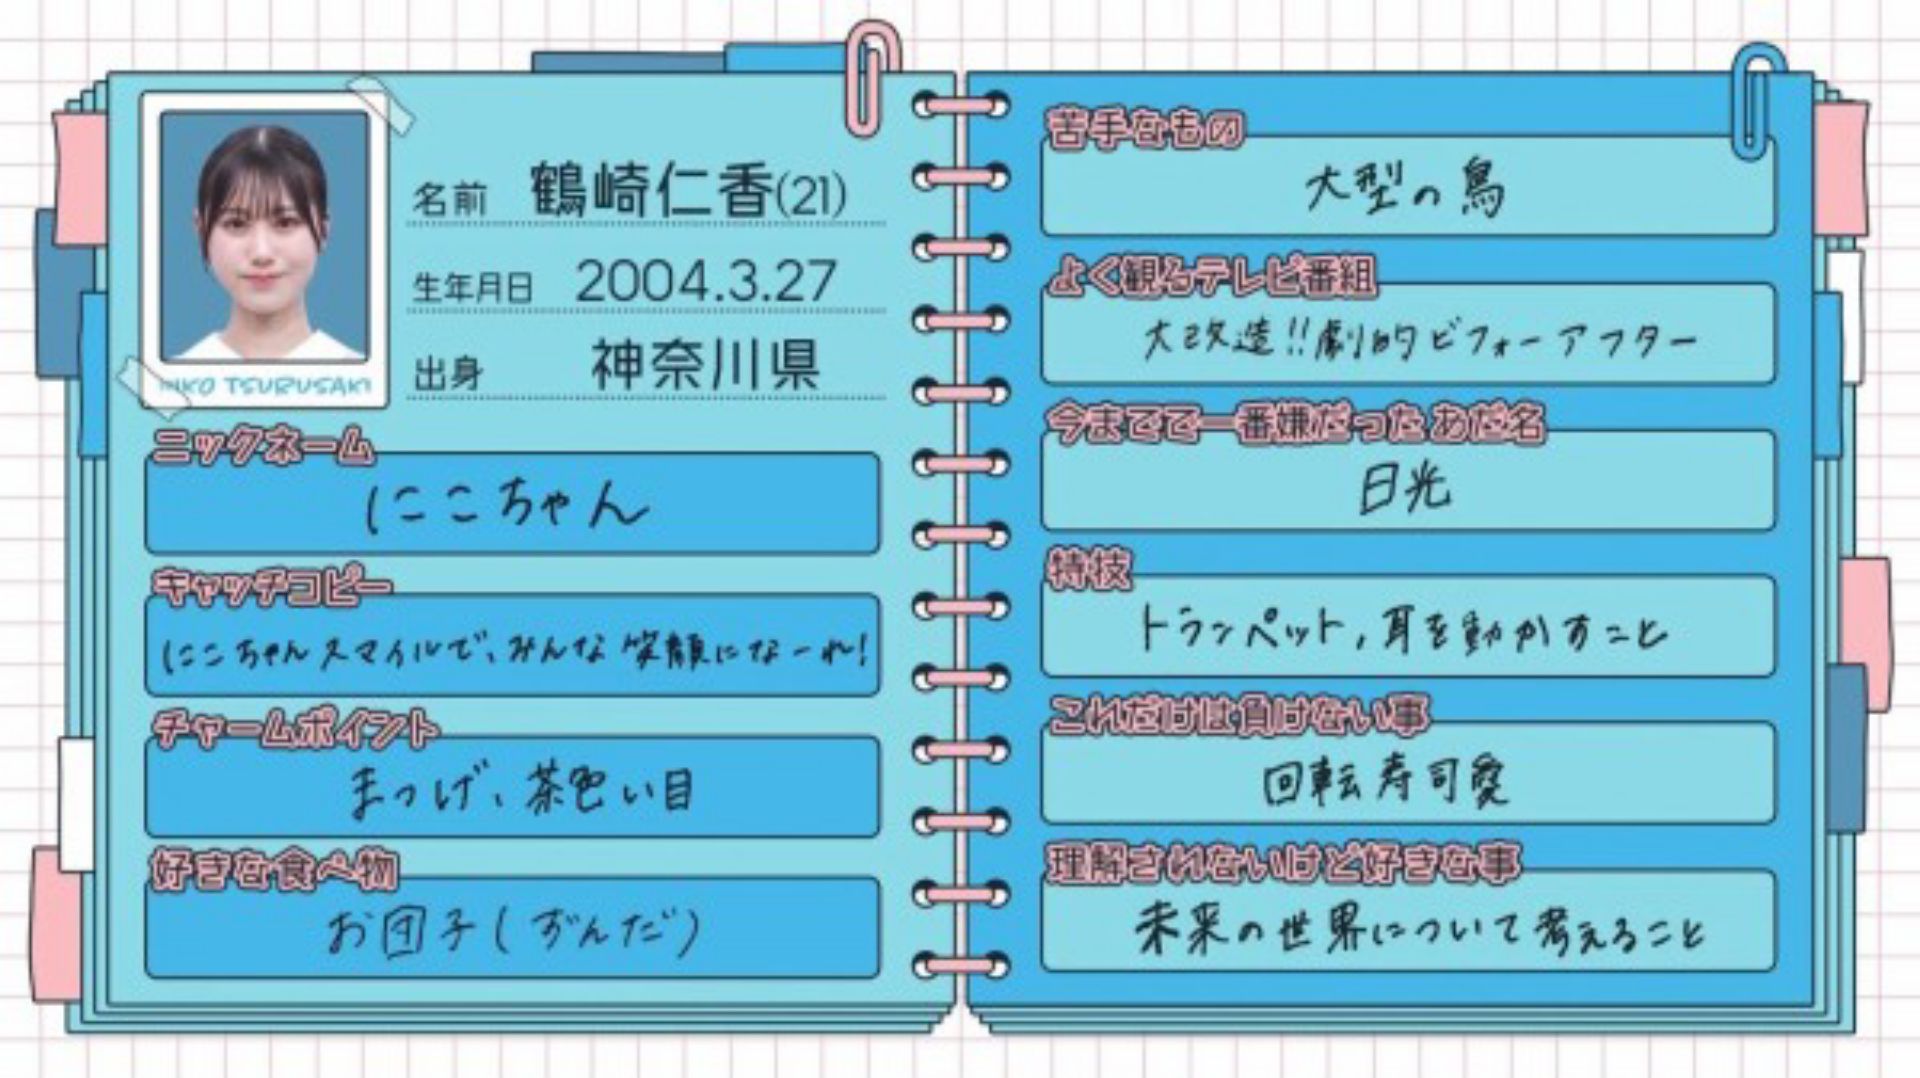 NIKO TSURUSAKI
名前 鶴崎仁香(21)
生年月日 2004.3.27
出身 神奈川県
ニックネーム
にこちゃん
キャッチコピー
にこちゃんスマイルで、みんな笑顔になーれ!
チャームポイント
まつげ、茶色い目
好きな食べ物
お団子(ずんだ)
苦手なもの
大型の鳥
よく観るテレビ番組
大改造!!劇的ビフォーアフター
今までで一番嫌だったあだ名
日光
特技
トランペット,耳を動かすこと
これだけは負けない事
回転寿司愛
理解されないけど好きな事
未来の世界について考えること